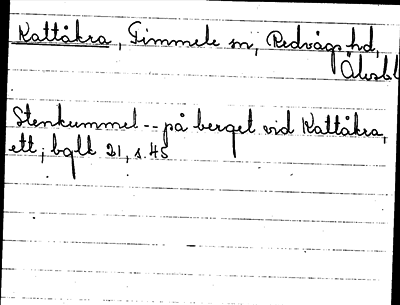 Kattåkra, Timmele sn, Redvägs hd,
Älvsbl
Stenkummel -- på berget vid Kattåkra,
ett; bglk 21, s. 45